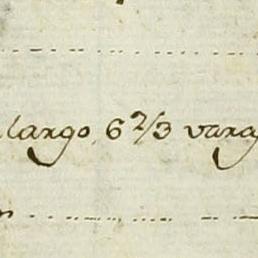 largo, 6 2/3 varas